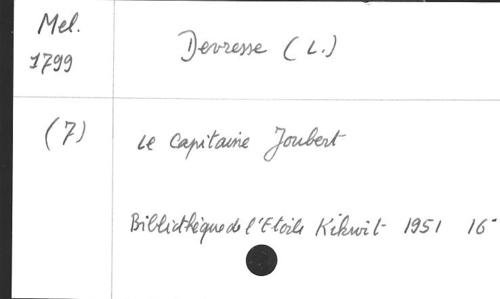 Mel.
1799
Devresse (L.)
(7)
Le Capitaine Joubert
Bibliothèque de l'Etoile Kikwit 1951 16°